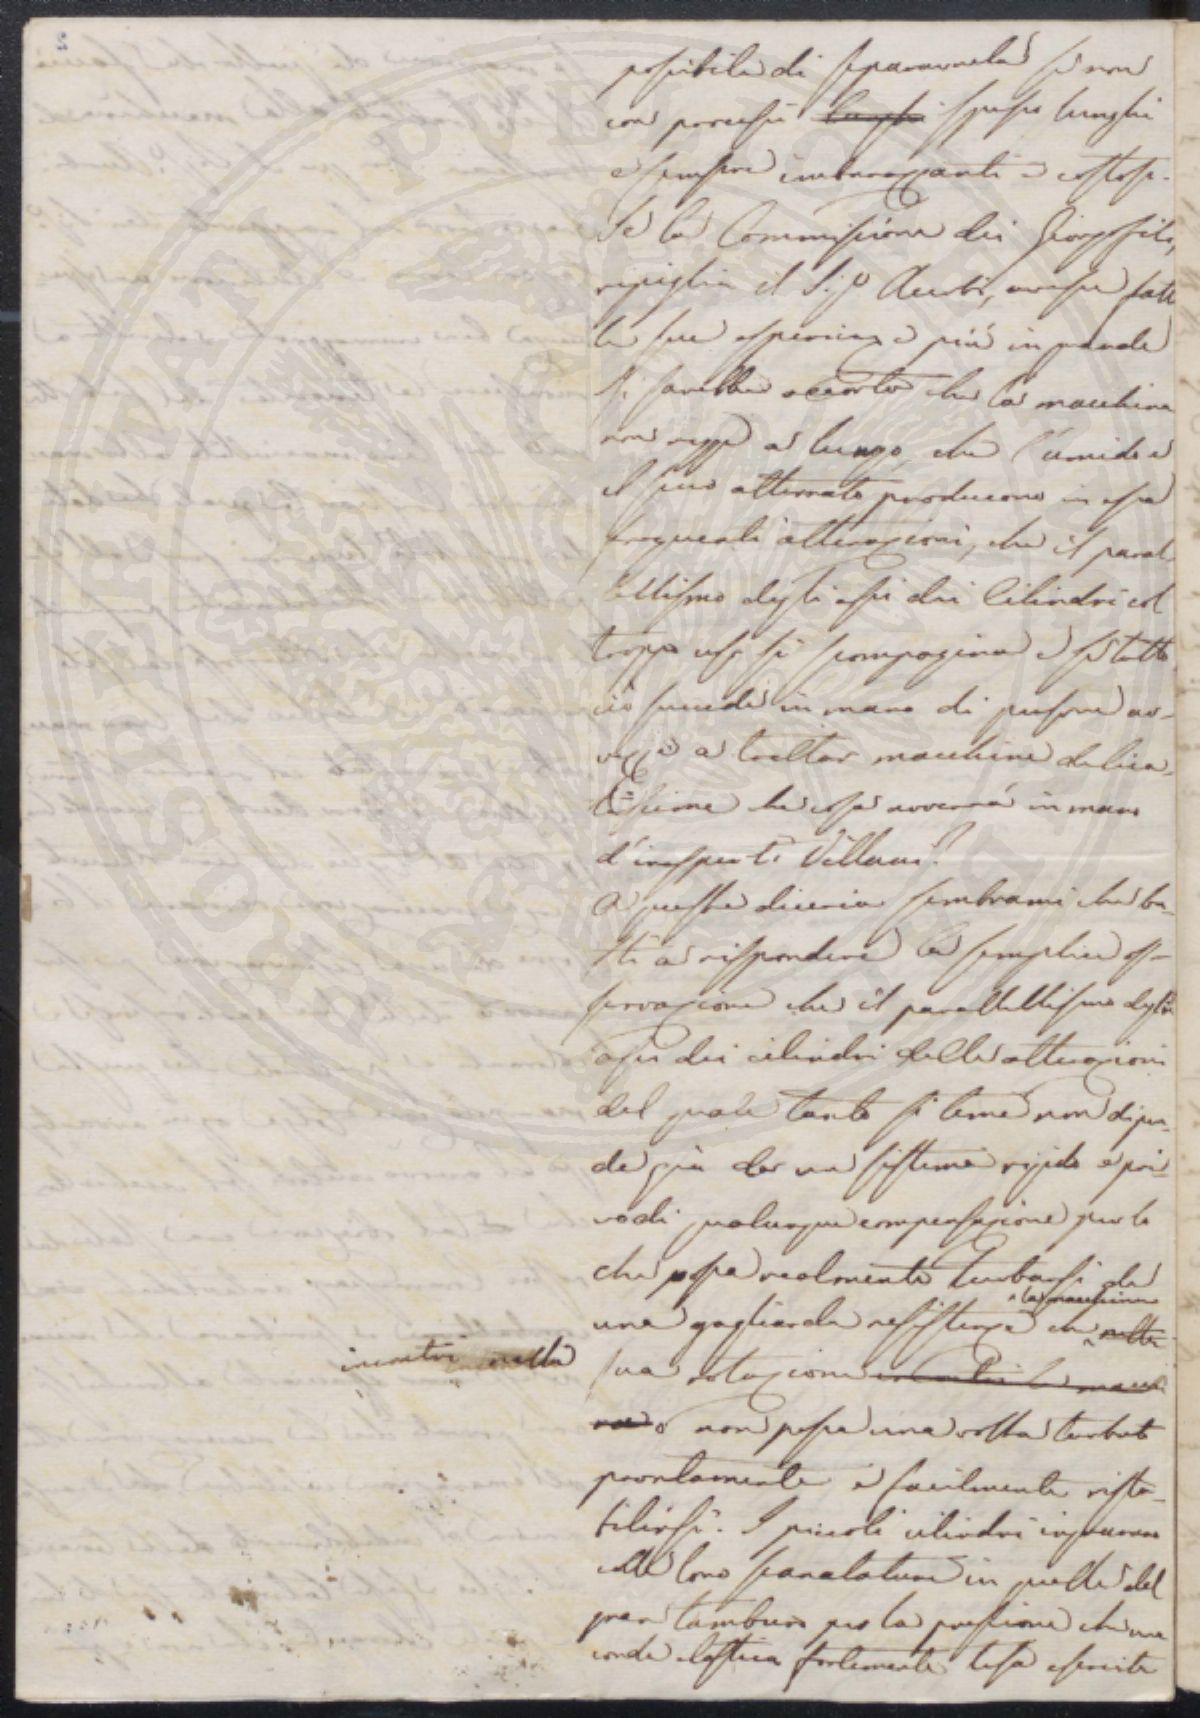 possibile di separarnela se non
con processi lunghi spesso lunghi
e sempre imbarazzanti e costosi.
Se la Commissione dei Georgofili,
ripiglia il Sig.r Acerbi, avesse fatte
le sue esperienze più in grande
si sarebbe accorta che la macchina
non regge a lungo, che l'umido e
il secco alternato producono in essa
frequenti alterazioni, che il paral-
lellismo degli assi dei Cilindri col
troppo uso si scompagina e se tutto
ciò succede in mano di persone av-
vezze a trattar macchine delica-
tissime che cosa avverrà in mano
d'inesperti Villani?
A queste dicerie sembrami che ba-
sti a rispondere la semplice os-
servazione che il parallellismo degli
assi dei cilindri delle alterazioni
del quale tanto si teme non dipen-
de già da un sistema rigido e pri-
vo di qualunque compensazione per lo
che possa realmente turbarsi da
una gagliarda resistenza che la macchina nella
incontri nella
sua rotazione incontri la macchi
na o non possa una volta turbato
prontamente e facilmente rista-
bilirsi. I piccoli cilindri ingranano
colle loro scanalature in quelle del
gran tamburo per la pressione che una
corda elastica fortemente tesa esercita